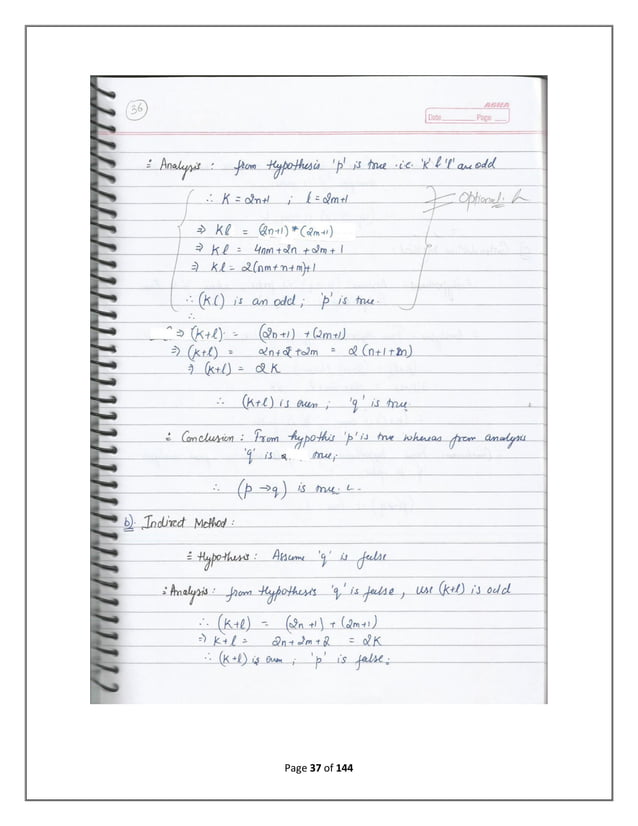 36
ASHA
Date Page
÷ Analysis : from Hypothesis 'p' is true .i.e. 'k' & 'l' are odd
∴ K = 2n+1 ; l = 2m+1
Optional.
⇒ Kl = (2n+1)*(2m+1)
⇒ Kl = 4nm+2n +2m+1
⇒ Kl = 2(nm+n+m)+1
∴ (Kl) is an odd ; 'p' is true.
∴
⇒ (k+l) = (2n+1) +(2m+1)
⇒ (k+l) = 2n+2+2m = 2(n+1+m)
⇒ (k+l) = 2K
∴ (k+l) is even ; 'q' is true.
÷ Conclusion : From hypothis 'p' is true whereas from analysis
'q' is true;
∴ (p → q) is true.
b) Indirect Method :
÷ Hypothesis : Assume 'q' is false
÷ Analysis : from Hypothesis 'q' is false , use (k+l) is odd
∴ (k+l) = (2n+1) + (2m+1)
⇒ k+l = 2n+2m+2 = 2K
∴ (k+l) is even ; 'p' is false;
Page 37 of 144